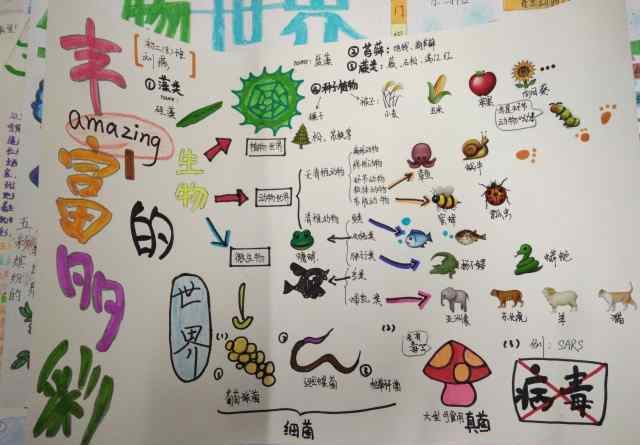 世界
丰富多彩
的
amazing
生物
世界
①藻类
硅藻
蓝藻
②苔藓
③蕨类
④种子植物
裸子
被子
松
小麦
玉米
苹果
向日葵
植物世界
动物世界
微生物
无脊椎动物
脊椎动物
扁形动物
线形动物
环节动物
软体动物
节肢动物
章鱼
蜗牛
蜜蜂
瓢虫
鱼类
两栖类
爬行类
鸟类
哺乳类
青蛙
扬子鳄
蟒蛇
亚洲象
东北虎
羊
猫
(1)
葡萄球菌
细菌
(2)
大型可食用真菌
(3)例：SARS
病毒